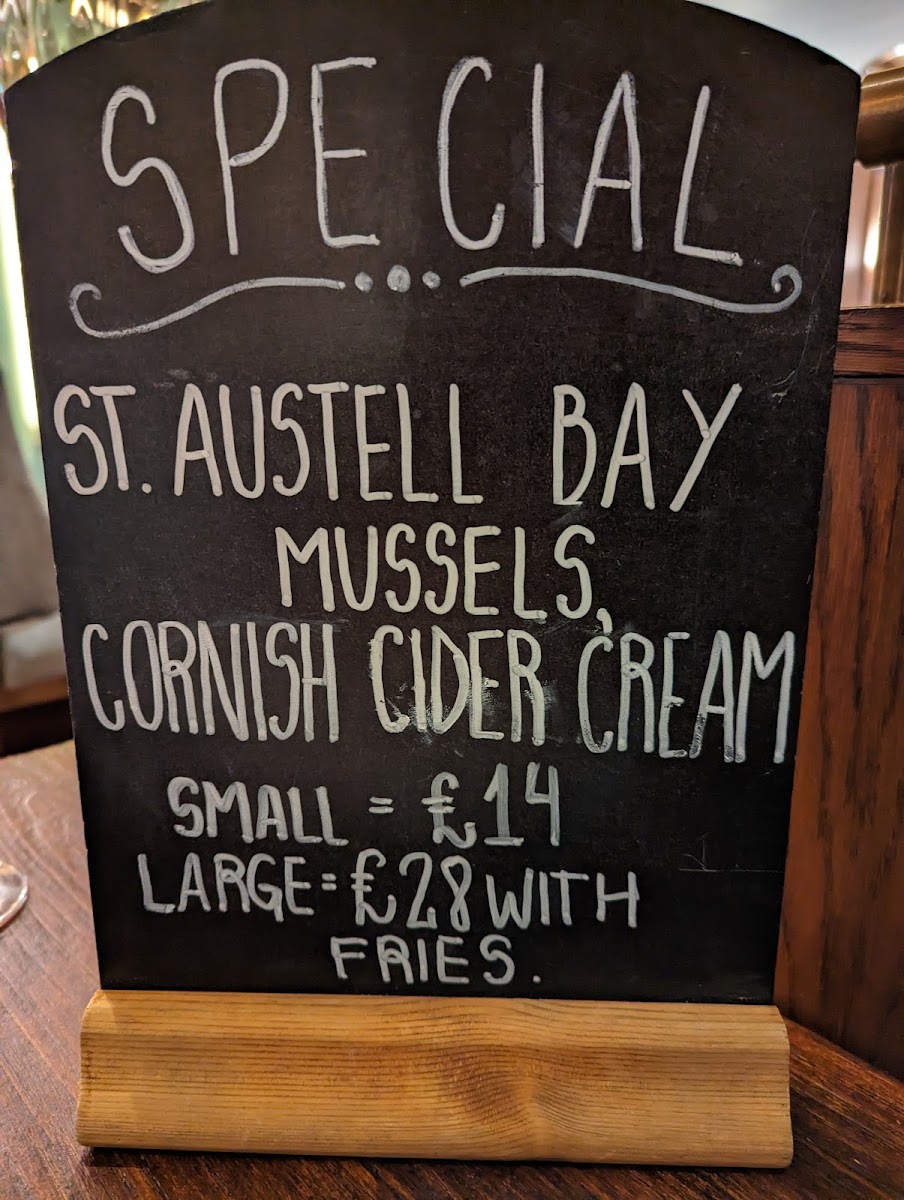 SPECIAL
ST. AUSTELL BAY
MUSSELS,
CORNISH CIDER CREAM
SMALL = £14
LARGE = £28 WITH
FRIES.